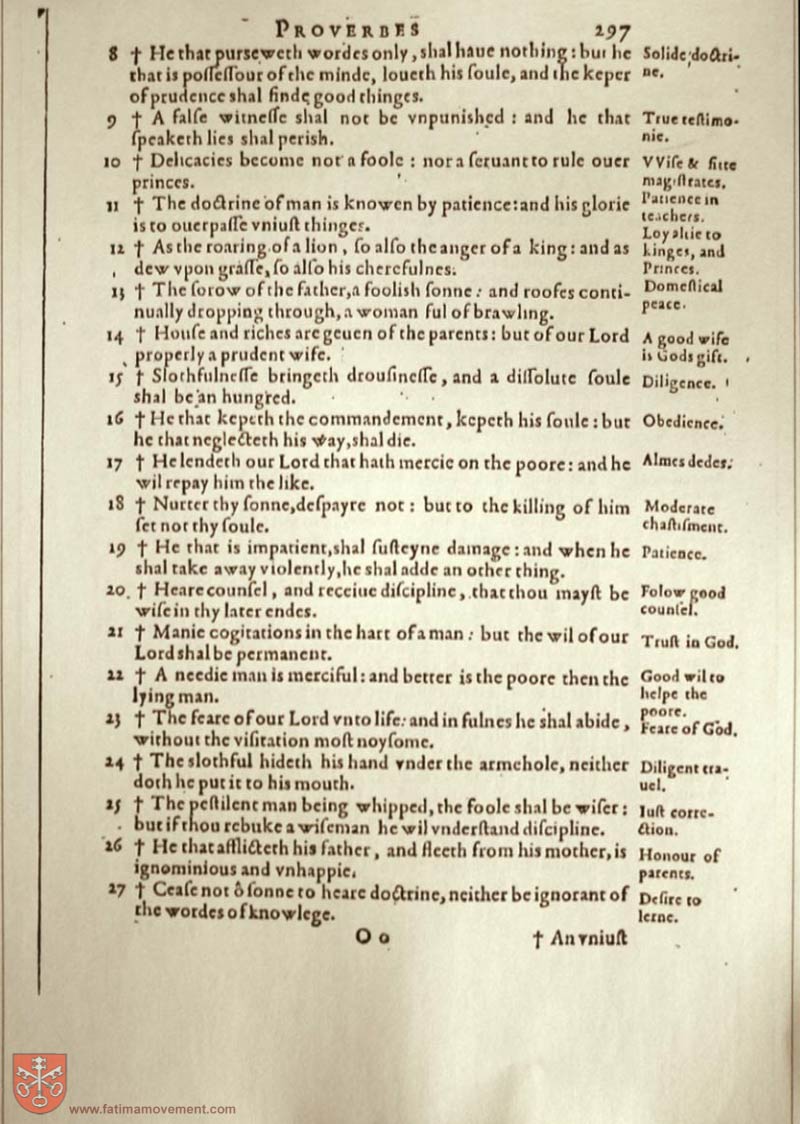 PROVERBES 297
8 † He that purseweth wordes only, shal haue nothing: but he
that is poſſeſſour of the minde, loueth his ſoule, and the keper
of prudence shal finde good thinges.
Solide doctri-
ne.
9 † A falſe witneſſe shal not be vnpunished: and he that
ſpeaketh lies shal perish.
True teſtimo-
nie.
10 † Delicacies become not a foole: nor a ſeruant to rule ouer
princes.
VViſe & fitte
magiſtrates.
11 † The doctrine of man is knowen by patience: and his glorie
is to ouerpaſſe vniuſt thinges.
Patience in
teachers.
12 † As the roaring of a lion, ſo alſo the anger of a king: and as
dew vpon graſſe, ſo alſo his cherefulnes.
Loyaltie to
kinges, and
Princes.
13 † The ſorow of the father, a foolish ſonne: and roofes conti-
nually dropping through, a woman ful of brawling.
Domeſtical
peace.
14 † Houſe and riches are geuen of the parents: but of our Lord
properly a prudent wife.
A good wife
is Gods gift.
15 † Slothfulneſſe bringeth drouſineſſe, and a diſſolute ſoule
shal be an hungred.
Diligence.
16 † He that kepeth the commandement, kepeth his ſoule: but
he that neglecteth his way, shal die.
Obedience.
17 † He lendeth our Lord that hath mercie on the poore: and he
wil repay him the like.
Almes dedes.
18 † Nurter thy ſonne, deſpayre not: but to the killing of him
ſet not thy ſoule.
Moderate
chaſtiſment.
19 † He that is impatient, shal ſuſteyne damage: and when he
shal take away violently, he shal adde an other thing.
Patience.
20 † Heare counſel, and receiue diſcipline, that thou mayſt be
wiſe in thy later endes.
Folow good
counſel.
21 † Manie cogitations in the hart of a man: but the wil of our
Lord shal be permanent.
Truſt in God.
22 † A needie man is merciful: and better is the poore then the
lying man.
Good wil to
helpe the
poore.
23 † The feare of our Lord vnto life: and in fulnes he shal abide,
without the viſitation moſt noyſome.
Feare of God.
24 † The slothful hideth his hand vnder the armehole, neither
doth he put it to his mouth.
Diligent tra-
uel.
25 † The peſtilent man being whipped, the foole shal be wiſer:
but if thou rebuke a wiſeman he wil vnderſtand diſcipline.
Iuſt corre-
ction.
26 † He that afflicteth his father, and fleeth from his mother, is
ignominious and vnhappie.
Honour of
parents.
27 † Ceaſe not ô ſonne to heare doctrine, neither be ignorant of
the wordes of knowlege.
Deſire to
lerne.
O o † An vniuſt
www.fatimamovement.com